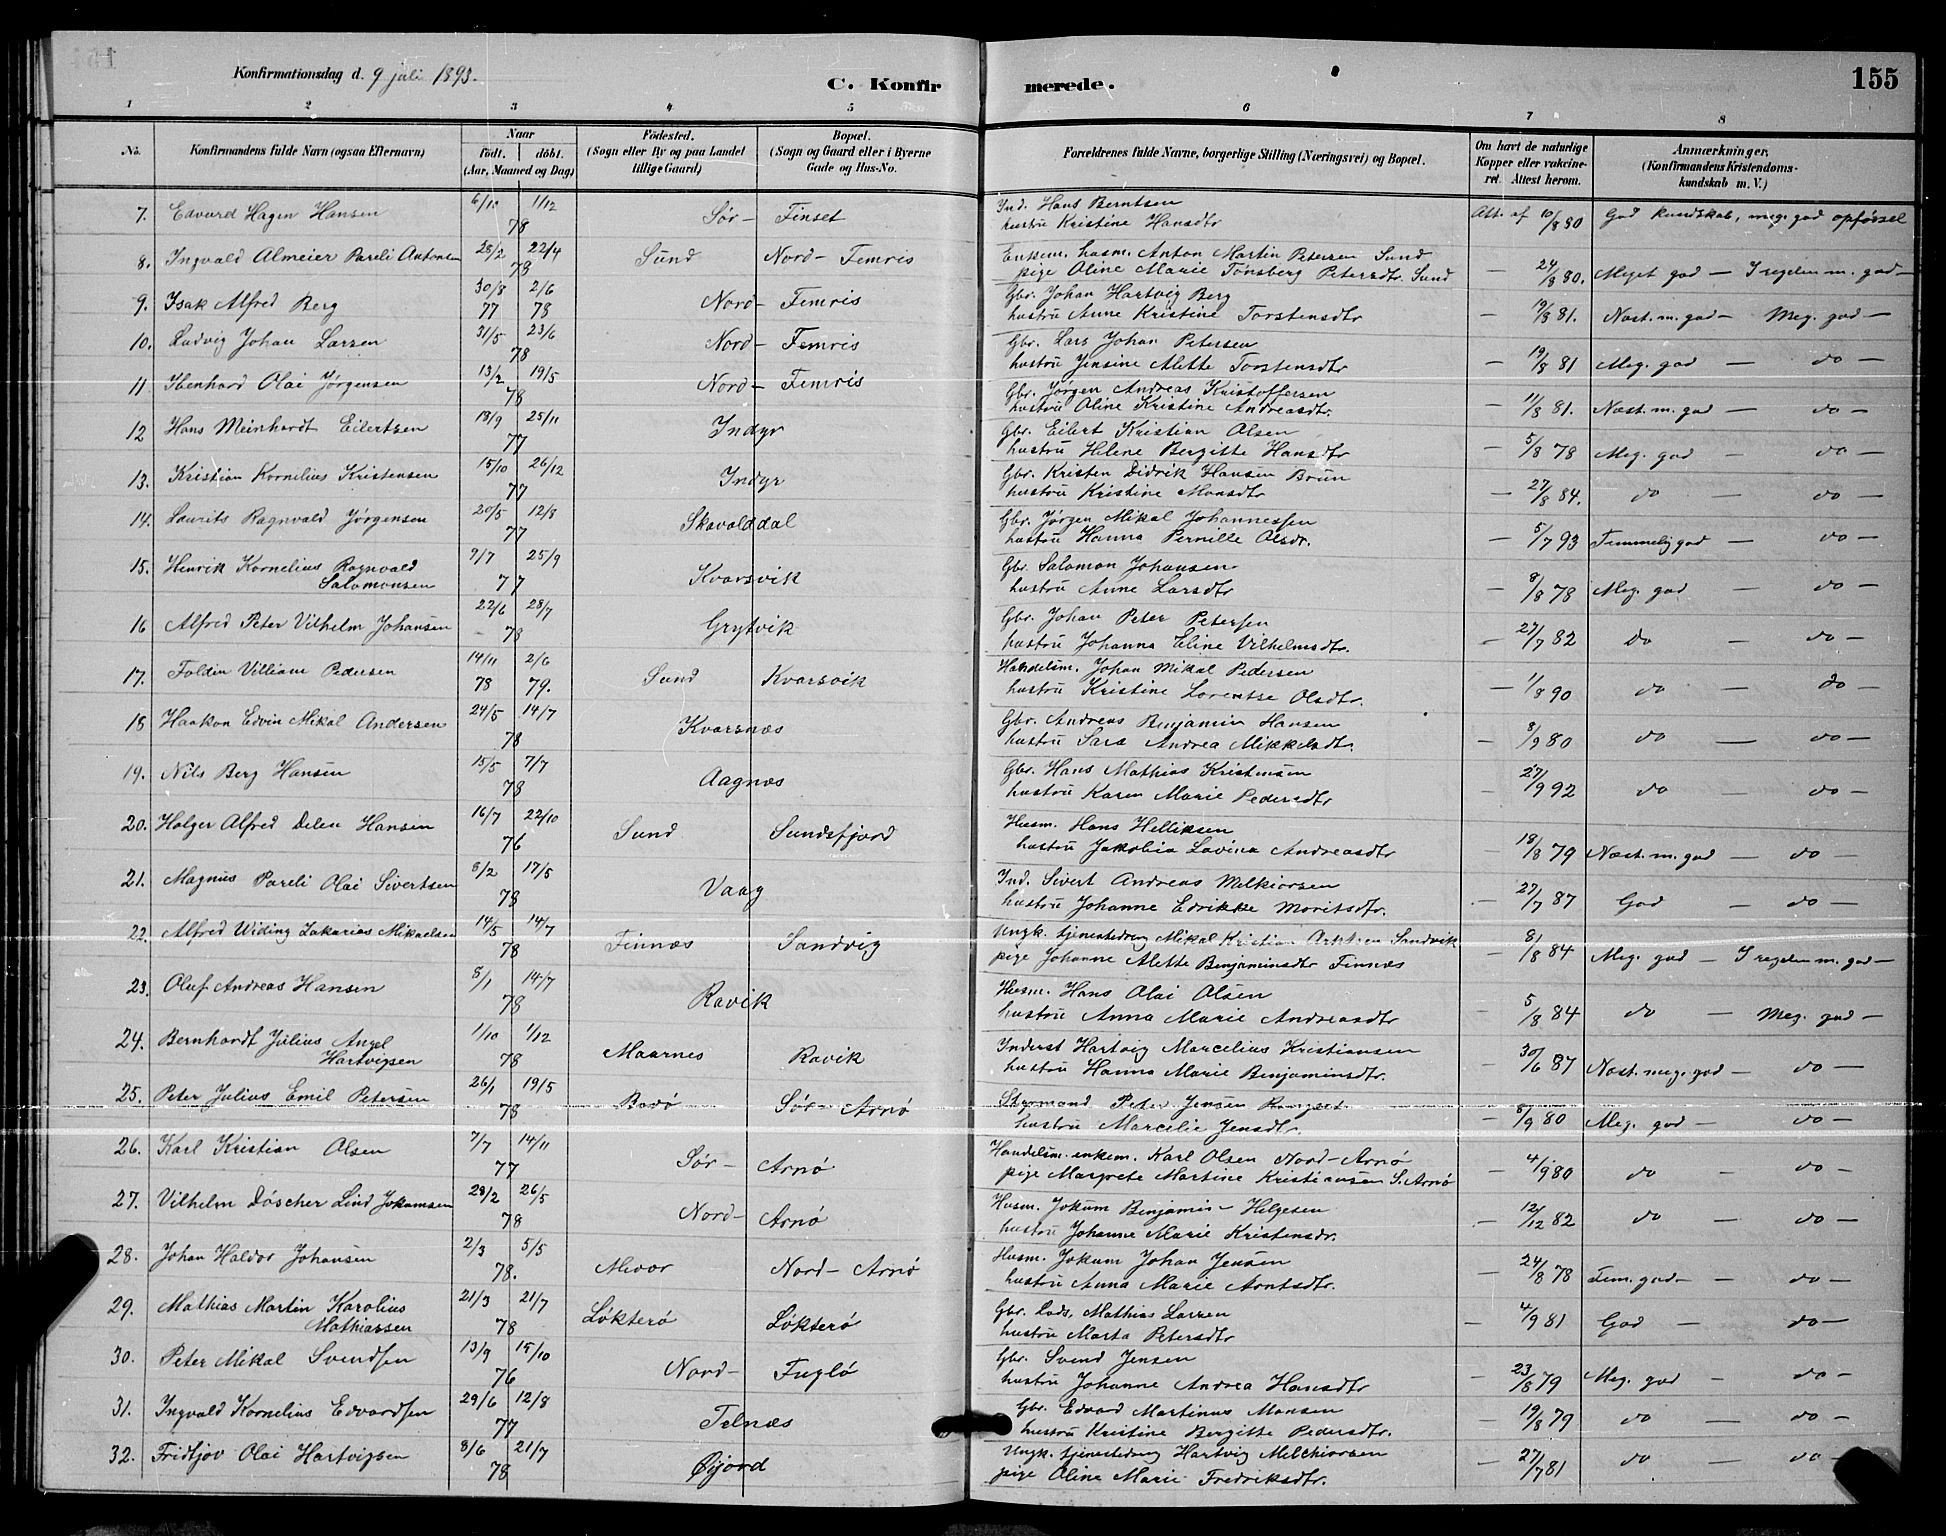 Konfirmationsdag d. 9 juli 1893.
C. Konfirmerede.
155
1 2 3 4 5 6 7 8
No. Konfirmandens fulde Navn (ogsaa Efternavn) Naar födt. döbt. (Aar, Maaned og Dag) Födested. (Sogn eller By og paa Landet tillige Gaard) Bopæl. (Sogn og Gaard eller i Byerne Gade og Hus-No. Forældrenes fulde Navne, borgerlige Stilling (Næringsvei) og Bopæl. Om havt de naturlige Kopper eller vakcineret. Attest herom. Anmærkninger, (Konfirmandens Kristendomskundskab m. V.)
7. Edvard Hagen Hansen 6/10 1/12 78 Sør- Finset Ind. Hans Berntsen Att. af 10/8 80 God kundskab, meg. god opførsel
hustru Kristine Hansdtr
8. Ingvald Almeier Pareli Antonsen 28/2 22/4 78 Sund Nord-Femris Enkem. husm. Anton Martin Petersen Sund — 24/8 80. Meget god — I regelen m. god —
pige Oline Marie Tønsberg Petersdtr. Sund
9. Isak Alfred Berg 30/8 77 2/6 78 Nord-Femris Gbr. Johan Hartvig Berg — 19/8 81. Næst. m. god — Meg. god —
hustru Anne Kristine Torstensdtr
10. Ludvig Johan Larsen 31/5 23/6 78 Nord-Femris Gbr. Lars Johan Petersen — 19/8 81 Meg. god — do —
hustru Jensine Alette Torstensdtr
11 Ibenhard Olai Jørgensen 13/2 19/5 78 Nord-Femris Gbr. Jørgen Andreas Kristoffersen — 11/8 81. Næst. m. god — do —
hustru Oline Kristine Andreasdtr.
12 Hans Meinhardt Eilertsen 18/9 25/11 77 Indyr Gbr. Eilert Kristian Olsen — 5/8 78 Meg. god — do —
hustru Helene Bergitte Hansdtr
13. Kristian Kornelius Kristensen 15/10 26/12 77 Indyr Gbr. Kristen Didrik Hansen Brun — 27/8 84. do — do —
hustru Kristine Monsdtr
14. Laurits Ragnvald Jørgensen 20/5 12/8 77 Skavolddal Gbr. Jørgen Mikal Johannessen — 5/7 93 Temmelig god — do —
hustru Hanna Pernille Olsdr.
15. Henrik Kornelius Ragnvald Salomonsen 7/7 25/9 77 Kvarsvik Gbr. Salomon Johansen — 8/8 78 Meg. god — do —
hustru Anne Larsdtr
16 Alfred Peter Vilhelm Johansen 22/6 28/7 78 Grytvik Gbr. Johan Peter Petersen — 27/7 82 do — do —
hustru Johanna Eline Vilhelmsdtr.
17. Foldin Villiam Pedersen 14/11 78 2/6 79. Sund Kvarsvik Handelsm. Johan Mikal Pedersen — 1/8 90 do — do —
hustru Kristine Lorentse Olsdtr.
18 Haakon Edvin Mikal Andersen 24/5 14/7 78 Kvarsnæs Gbr. Andreas Benjamin Hansen — 8/9 80 do — do —
hustru Sara Andrea Mikkelsdtr.
19. Nils Berg Hansen 15/5 7/7 78 Aagnæs Gbr. Hans Mathias Kristensen — 27/9 92 do — do —
hustru Karen Marie Pedersdtr
20. Holger Alfred Delen Hansen 16/7 22/10 76 Sund Sundsfjord Husm. Hans Helliksen — 18/8 79 Næst. m. god — do —
hustru Jakobia Lovina Andreasdtr
21. Magnus Pareli Olai Sivertsen 8/2 17/5 78 Vaag Ind. Sivert Andreas Melkiorsen — 27/7 87 God — do —
hustru Johanne Edrikke Moritsdtr.
22. Alfred Widing Zakarias Mikaelsen 14/5 14/7 78 Finnæs Sandvig Ungk. tjenestedreng Mikal Kristian Sandvik — 8/8 84 Meg. god — I regelen m. god —
pige Johanne Alette Benjaminsdtr Finnæs
23. Oluf Andreas Hansen 5/1 14/7 78 Ravik Husm. Hans Olai Olsen — 5/8 84 do — Meg. god —
hustru Anna Marie Andreasdtr
24. Bernhardt Julius Angel Hartvigsen 1/10 1/12 78 Maarnes Ravik Inderst Hartvig Marcelius Kristiansen — 30/6 87 Næst. meg. god — do —
hustru Hanna Marie Benjaminsdtr.
25. Peter Julius Emil Petersen 26/1 19/5 78 Bodø Sør-Arnø Styrmand Peter Jensen — 8/9 80 Meg. god — do —
hustru Marcelie Jensdtr.
26. Karl Kristian Olsen 7/7 14/11 77 Sør- Arnø Handelsm. enkem. Karl Olsen Nord-Arnø — 4/9 80 do — do —
pige Margrete Martine Kristiansen S. Arnø
27. Vilhelm Döscher Lind Jokumsen 28/2 26/5 78 Nord- Arnø Husm. Jokum Benjamin Helgesen — 12/12 82 do — do —
hustru Johanne Marie Kristensdr.
28. Johan Haldor Johansen 2/3 5/5 78. Alvor Nord-Arnø Husm. Jokum Johan Jensen — 24/8 78 Tem. god — do —
hustru Anna Marie Arntsdtr.
29. Mathias Martin Karolius Mathiassen 21/3 21/7 78 Løkterø Løkterø Gbr. Lods, Mathias Larsen — 4/9 81 God — do —
hustru Marta Petersdtr
30. Peter Mikal Svendsen 13/9 15/10 76 Nord- Fuglø Gbr. Svend Jensen — 23/8 79 Meg. god — do —
hustru Johanne Andrea Hansdtr
31. Ingvald Kornelius Edvardsen 29/6 12/8 77 Telnæs Gbr. Edvard Martinus Monsen — 19/8 79 do — do —
hustru Kristine Bergitte Pedersdtr.
32. Fridtjov Olai Hartvigsen 8/6 21/7 78 Øijord Ungk. tjenestedreng Hartvig Melchiorsen — 27/7 81 do — do —
pige Oline Marie Fredriksdtr.